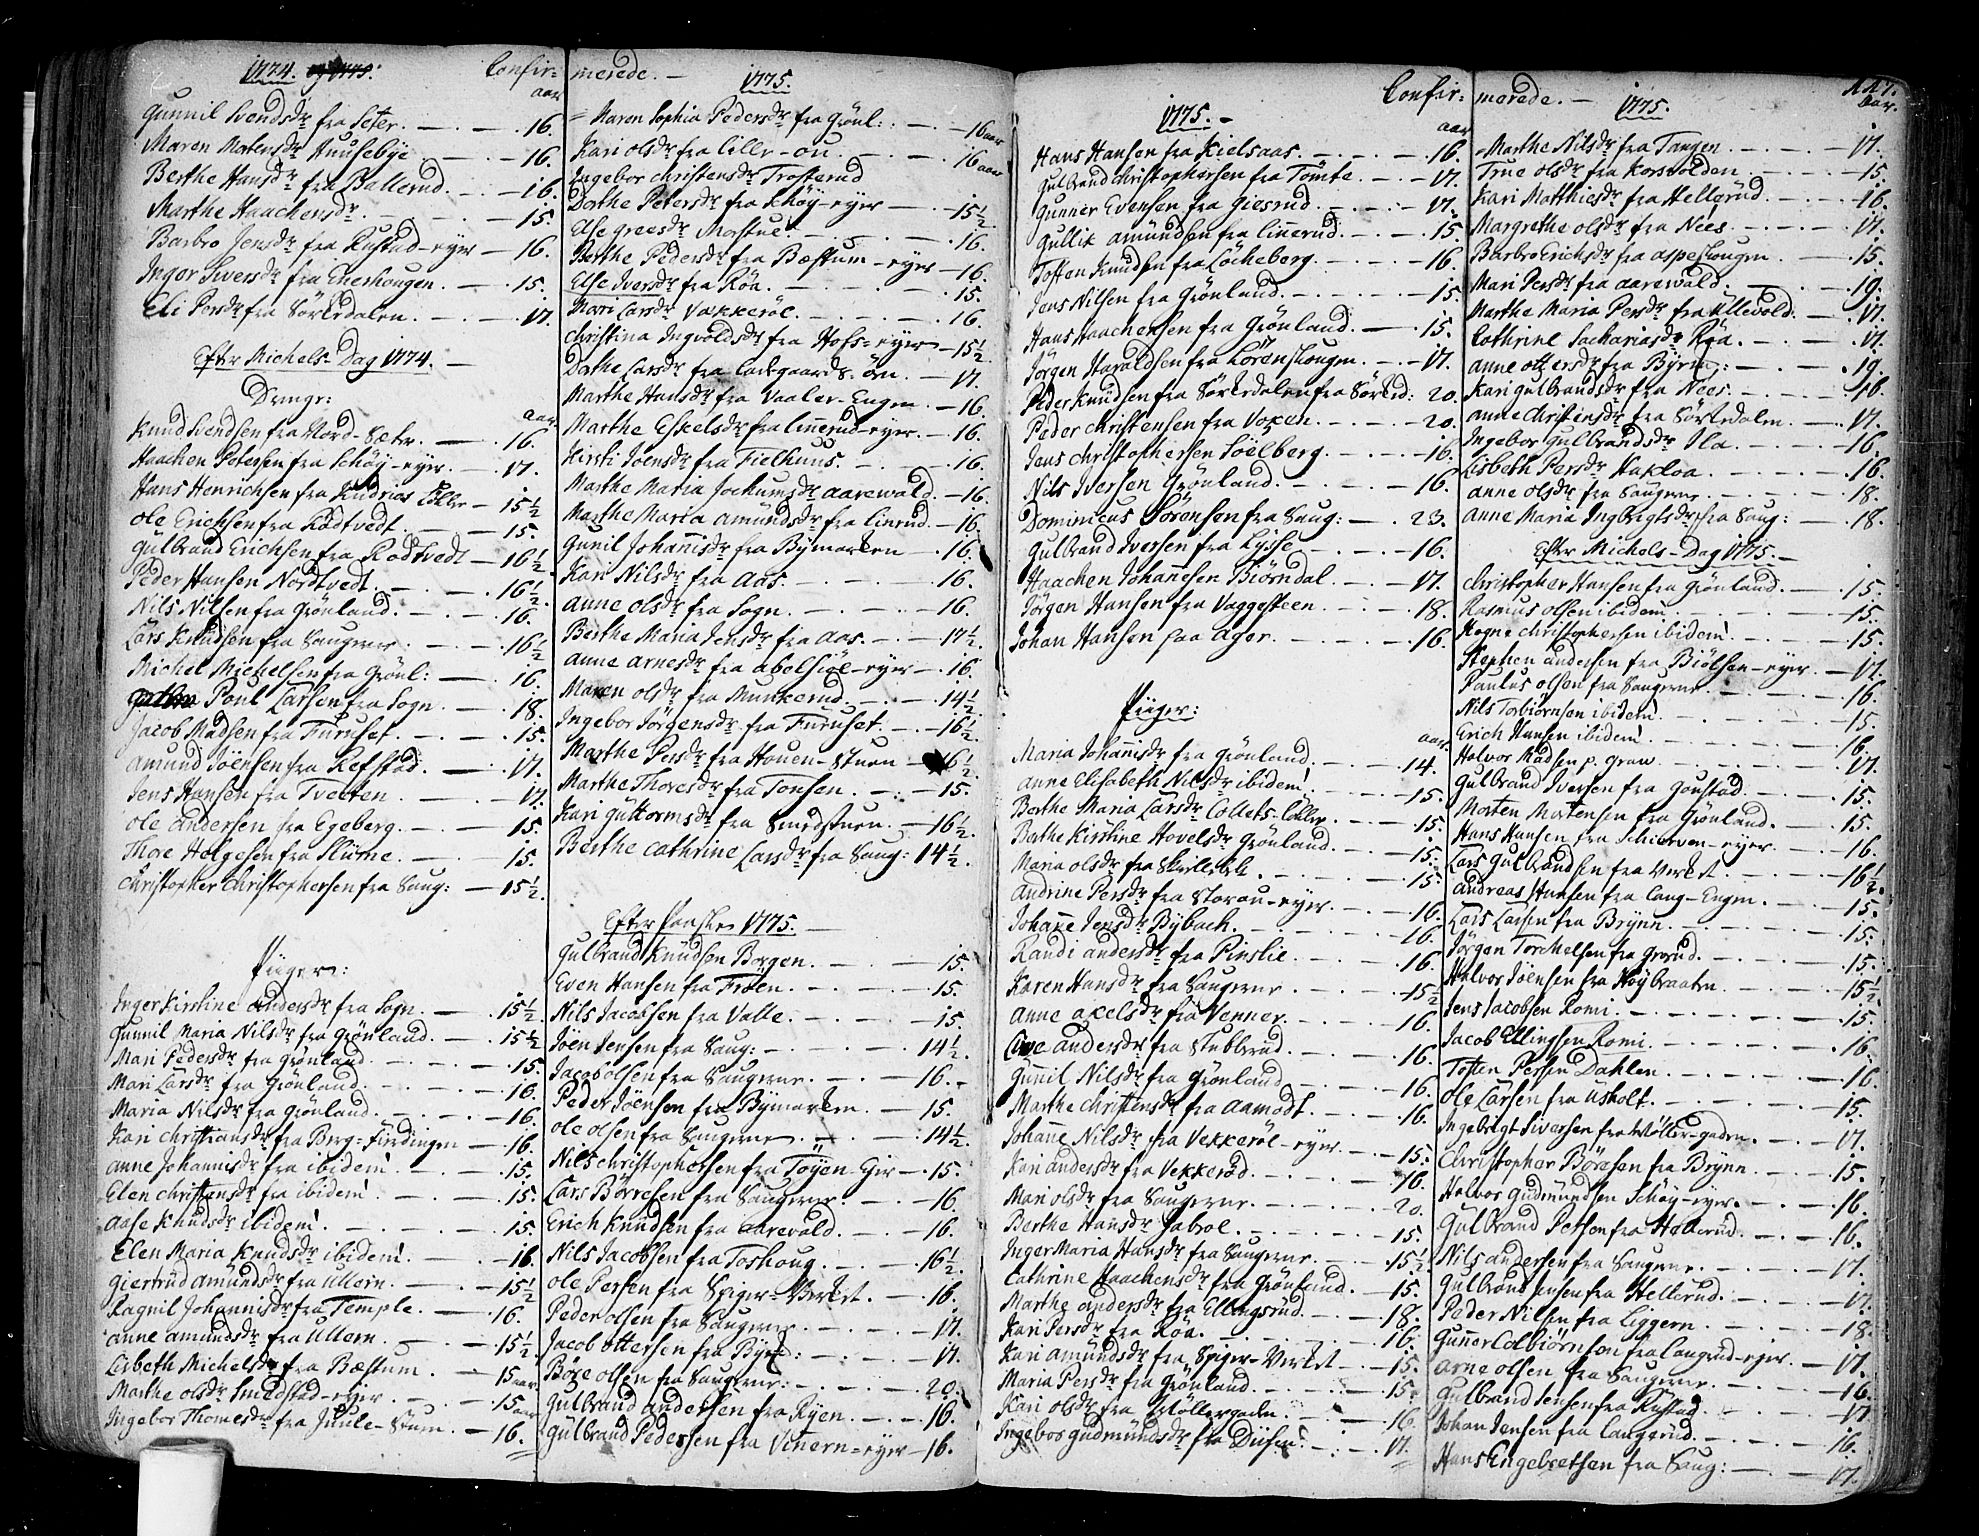 1774. Confir=
aar
Gunnil Svendsdr fra Seter. 16.
Maren Matensdr Huusebye 16.
Berthe Hansdr fra Ballerud. 16.
Marthe Haachensdr. 15.
Barbro Jensdr fra Rustad-eyer 16.
Inger Siversdr fra Enerhougen. 15.
Eli Persdr fra Sörkedalen. 17.
Efter Michels-Dag 1774.
Drenge:
aar
Knud Svendsen fra Nord-Sæter. 16.
Haachen Petersen fra Schöy-eyer. 17.
Hans Henrichsen fra 15½
Ole Erichsen fra Rödtvedt. 15.
Gulbrand Erichsen fra Rödtvedt 16½
Peder Hansen Nordtvedt. 16½
Nils Nilsen fra Grönland. 16.
Lars Knudsen fra Saugerne. 16½
Michel Michelsen fra Grönl: 16.
Poul Larsen fra Sogn. 18.
Jacob Madsen fra Furuset. 15.
Amund Jöensen fra Refstad. 17.
Jens Hansen fra Tveeten. 17.
Ole Andersen fra Egeberg. 15.
Thore Helgesen fra Slüme. 15.
Christopher Christophersen fra Saug: 15½
Piiger:
Inger Kirstine Andersdr fra Sogn. 15½
Gunnil Maria Nilsdr fra Grönland. 15½
Mari Pedersdr fra Grönland 15.
Mari Larsdr fra Grönland. 16.
Maria Nilsdr fra Grönland. 16.
Kari Christiansdr fra Berg-Fierdingen 16.
Anne Johannisdr fra ibidem 15.
Elen Christensdr fra ibidem 15.
Aase Knudsdr ibidem. 15.
Elen Maria Knudsdr ibidem 16.
Giertrud Amundsdr fra Ullern. 15½
Ragnil Johannisdr fra Temple. 16.
Anne Amundsdr fra Ullern. 15½
Lisbeth Michelsdr fra Bæstum. 15 aar
Marthe Olsdr Smedstad-eyer. 15 aar
Ingebor Thomesdr fra Juule-Stuen. 16.
merede. 1775.
Maren Sophia Pedersdr fra Grönl: 16 aar
Kari Olsdr fra Lille-oen 16 aar
Ingebor Christensdr Trosterud
Dorthe Petersdr fra Schöy-eyer 15½
Else Greesdr Morstue. 16.
Berthe Pedersdr fra Bæstum-eyer 16.
Else Iversdr fra Röa. 15.
Mari Larsdr Vækkeröe. 16.
Christina Ingvoldsdr fra Hofs-eyer 15½
Dorthe Larsdr fra Ladegaards-öen. 17.
Marthe Hansdr fra Vaaler-Engen 16.
Marthe Eskelsdr fra Linnerud-eyer. 16.
Kirsti Joensdr fra Fielhuus. 16.
Marthe Maria Jochumsdr Aarewald. 16.
Marthe Maria Amundsdr fra Linrud. 16.
Gunil Johannisdr fra Bymarken 16.
Kari Nilsdr fra Aas. 16.
Anne Olsdr fra Sogn. 16.
Berthe Maria Jensdr fra Aas. 17½
Anne Arnesdr fra Abelsiöe-eyer 16.
Maren Olsdr fra Munkerud. 14½
Ingebor Jörgensdr fra Furuset. 16½
Marthe Persdr fra Houen-Stuen 16½
Marthe Thoresdr fra Tonsen. 15.
Kari Guttormsdr fra Smedstuen. 16½
Berthe Cathrine Larsdr fra Saug: 14½.
Efter Paaske 1775.
Gulbrand Knudsen Borgen. 15.
Even Hansen fra Fröen. 15.
Nils Jacobsen fra Valle. 15.
Jöen Jensen fra Saug: 14½.
Jacob Olsen fra Saugerne. 16.
Peder Jöensen fra Bymarken. 15.
Ole Olsen fra Saugerne. 14½
Nils Christophersen fra Töyen-Gier 15.
Lars Börresen fra Saugerne. 16.
Erich Knudsen fra Aarevold. 16.
Nils Jacobsen fra Toshoug. 16½.
Ole Persen fra Spiger-Verket. 16.
Peder Olsen fra Saugerne. 17.
Jacob Ottersen fra 17.
Böre Olsen fra Saugerne. 20.
Gulbrand Andersen fra Ryen. 16.
Gülbrand Pedersen fra Vinern-eyer 16.
1775. Confir=
aar
Hans Hansen fra Kielsaas. 16.
Gulbrand Christophersen fra Tömte. 17.
Gunner Evensen fra Giesrud. 17.
Gullik Amundsen fra Linerud. 15.
Tosten Knudsen fra Löcheberg. 16.
Jens Nilsen fra Grönland. 15.
Hans Haachensen fra Grönland. 15.
Jörgen Haraldsen fra Lörenskougen. 17.
Peder Knudsen fra Sörkedalen fra Sörked: 20.
Peder Christensen fra Voxen. 20.
Jens Christophersen Söelberg. 16.
Nils Iversen Grönland. 16.
Dominicus Sörensen fra Saug: 23.
Gulbrand Iversen fra Lysse. 16.
Haachen Johannesen Biörndal. 17.
Jörgen Hansen fra Vaggesteen. 18.
Johan Hansen paa Ager. 16.
Piiger:
aar.
Maria Johannisdr fra Grönland. 14.
Anne Elisabeth Nilsdr ibidem. 15.
Berthe Maria Larsdr Collets-Lökke. 15.
Berthe Kirstine Hovelsdr Grönland. 15.
Maria Olsdr fra Skillebek. 15.
Andrine Persdr fra Storau-eyer. 16.
Johanne Jensdr Bybach. 16.
Randi Andersdr fra Pinslie. 16.
Karen Hansdr fra Saugerne. 15½
Anne Axelsdr fra Venner. 16.
Andersdr fra Stubberud. 16.
Gunnil Nilsdr fra Grönland 16.
Marthe Christensdr fra Aamodt. 16.
Johanne Nilsdr fra Vekkeröe-eyer. 15.
Kari Andersdr fra Vekkeröd. 16.
Mari Olsdr fra Saugerne. 20.
Berthe Hansdr Sabroe. 15.
Inger Maria Hansdr fra Saugerne. 15½
Cathrine Haachensdr fra Grönland. 15.
Marthe Andersdr fra Ellingsrud. 18.
Kari Persdr fra Röa. 16.
Kari Amundsdr fra Spiger-Verket 15.
Maria Persdr fra Grönland. 15.
Kari Olsdr fra Möllergaden. 16.
Ingebor Gudmundsdr fra Diisen. 17.
merede. 1775. 117.
aar.
Marthe Nilsdr fra Tangen. 17.
True Olsdr fra Korsvolden 15.
Kari Matthiesdr fra Hellerud. 16.
Margrethe Olsdr fra Nees. 17.
Barbro Erichsdr fra Aspeskougen. 15.
Mari Persdr fra Aarewald. 19.
Marthe Maria Persdr fra Ullevold. 17.
Cathrine Sachariasdr Röa. 17.
Anne Ottersdr fra Byrn: 19.
Kari Gulbrandsdr fra Nees. 16.
Anne Christensdr fra Sörkedalen. 17.
Ingebor Gulbrandsdr Ila 16.
Lisbeth Persdr Hakloa. 16.
Anne Olsdr fra Saugerne. 18.
Anne Maria Ingbrigtsdr fra Saug: 18.
Efter Michels-Dag 1775.
Christopher Hansen fra Grönland. 15.
Rasmus Olsen ibidem. 15.
Hogne Christophersen ibidem. 15.
Stephen Andersen fra Biölsen-eyer. 17.
Paulus Olsen fra Saugerne. 16.
Nils Torbiörnsen ibidem. 15.
Erich Hansen ibidem. 16.
Halvor Madsen p. Graw. 17.
Gulbrand Iversen fra Goustad. 15.
Morten Mortensen fra Grönland. 15.
Hans Hansen fra Schierven-eyer. 16.
Lars Gulbrandsen fra Verket. 16½.
Andreas Hansen fra Lang-Engen. 15.
Lars Larsen fra Brynn. 15.
Jörgen Torchelsen fra Grorud. 15.
Halvor Jöensen fra Höybraaten. 15½
Jens Jacobsen Romi. 15.
Jacob Ellingsen Romi. 16.
Tosten Persen Dahlen. 16.
Ole Larsen fra Usholt. 15.
Ingebrigt Siversen fra Möller-gaden. 17.
Christopher Böresen fra Brynn. 15.
Halvor Gudmundsen Schöy-eyer. 16.
Gulbrand Petsen fra Hellerud. 16.
Nils Andersen fra Saugerne. 17.
Gulbrand Jensen fra Hellerud. 17.
Peder Nilsen fra Liggern. 18.
Gunner Colbiörnsen fra Langrud-eyer. 17.
Arne Olsen fra Saugerne. 16.
Gulbrand Jensen fra Rustad. 17
Johan Jensen fra Langerud. 16.
Hans Engebretsen fra Saug: 17.